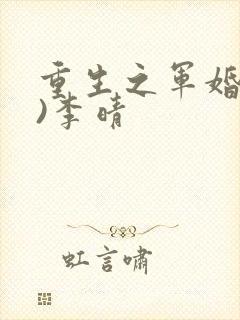 重生之军婚
)李晴
虹言啸